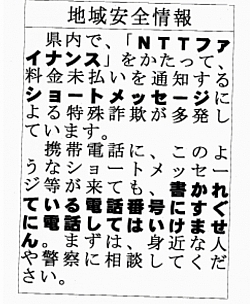 地域安全情報
県内で、「NTTファ
イナンス」をかたって、
料金未払いを通知する
ショートメッセージに
よる特殊詐欺が多発し
ています。
携帯電話に、このよ
うなショートメッセー
ジ等が来ても、書かれ
ている電話番号にすぐ
に電話してはいけませ
ん。まずは、身近な人
や警察に相談してくだ
さい。